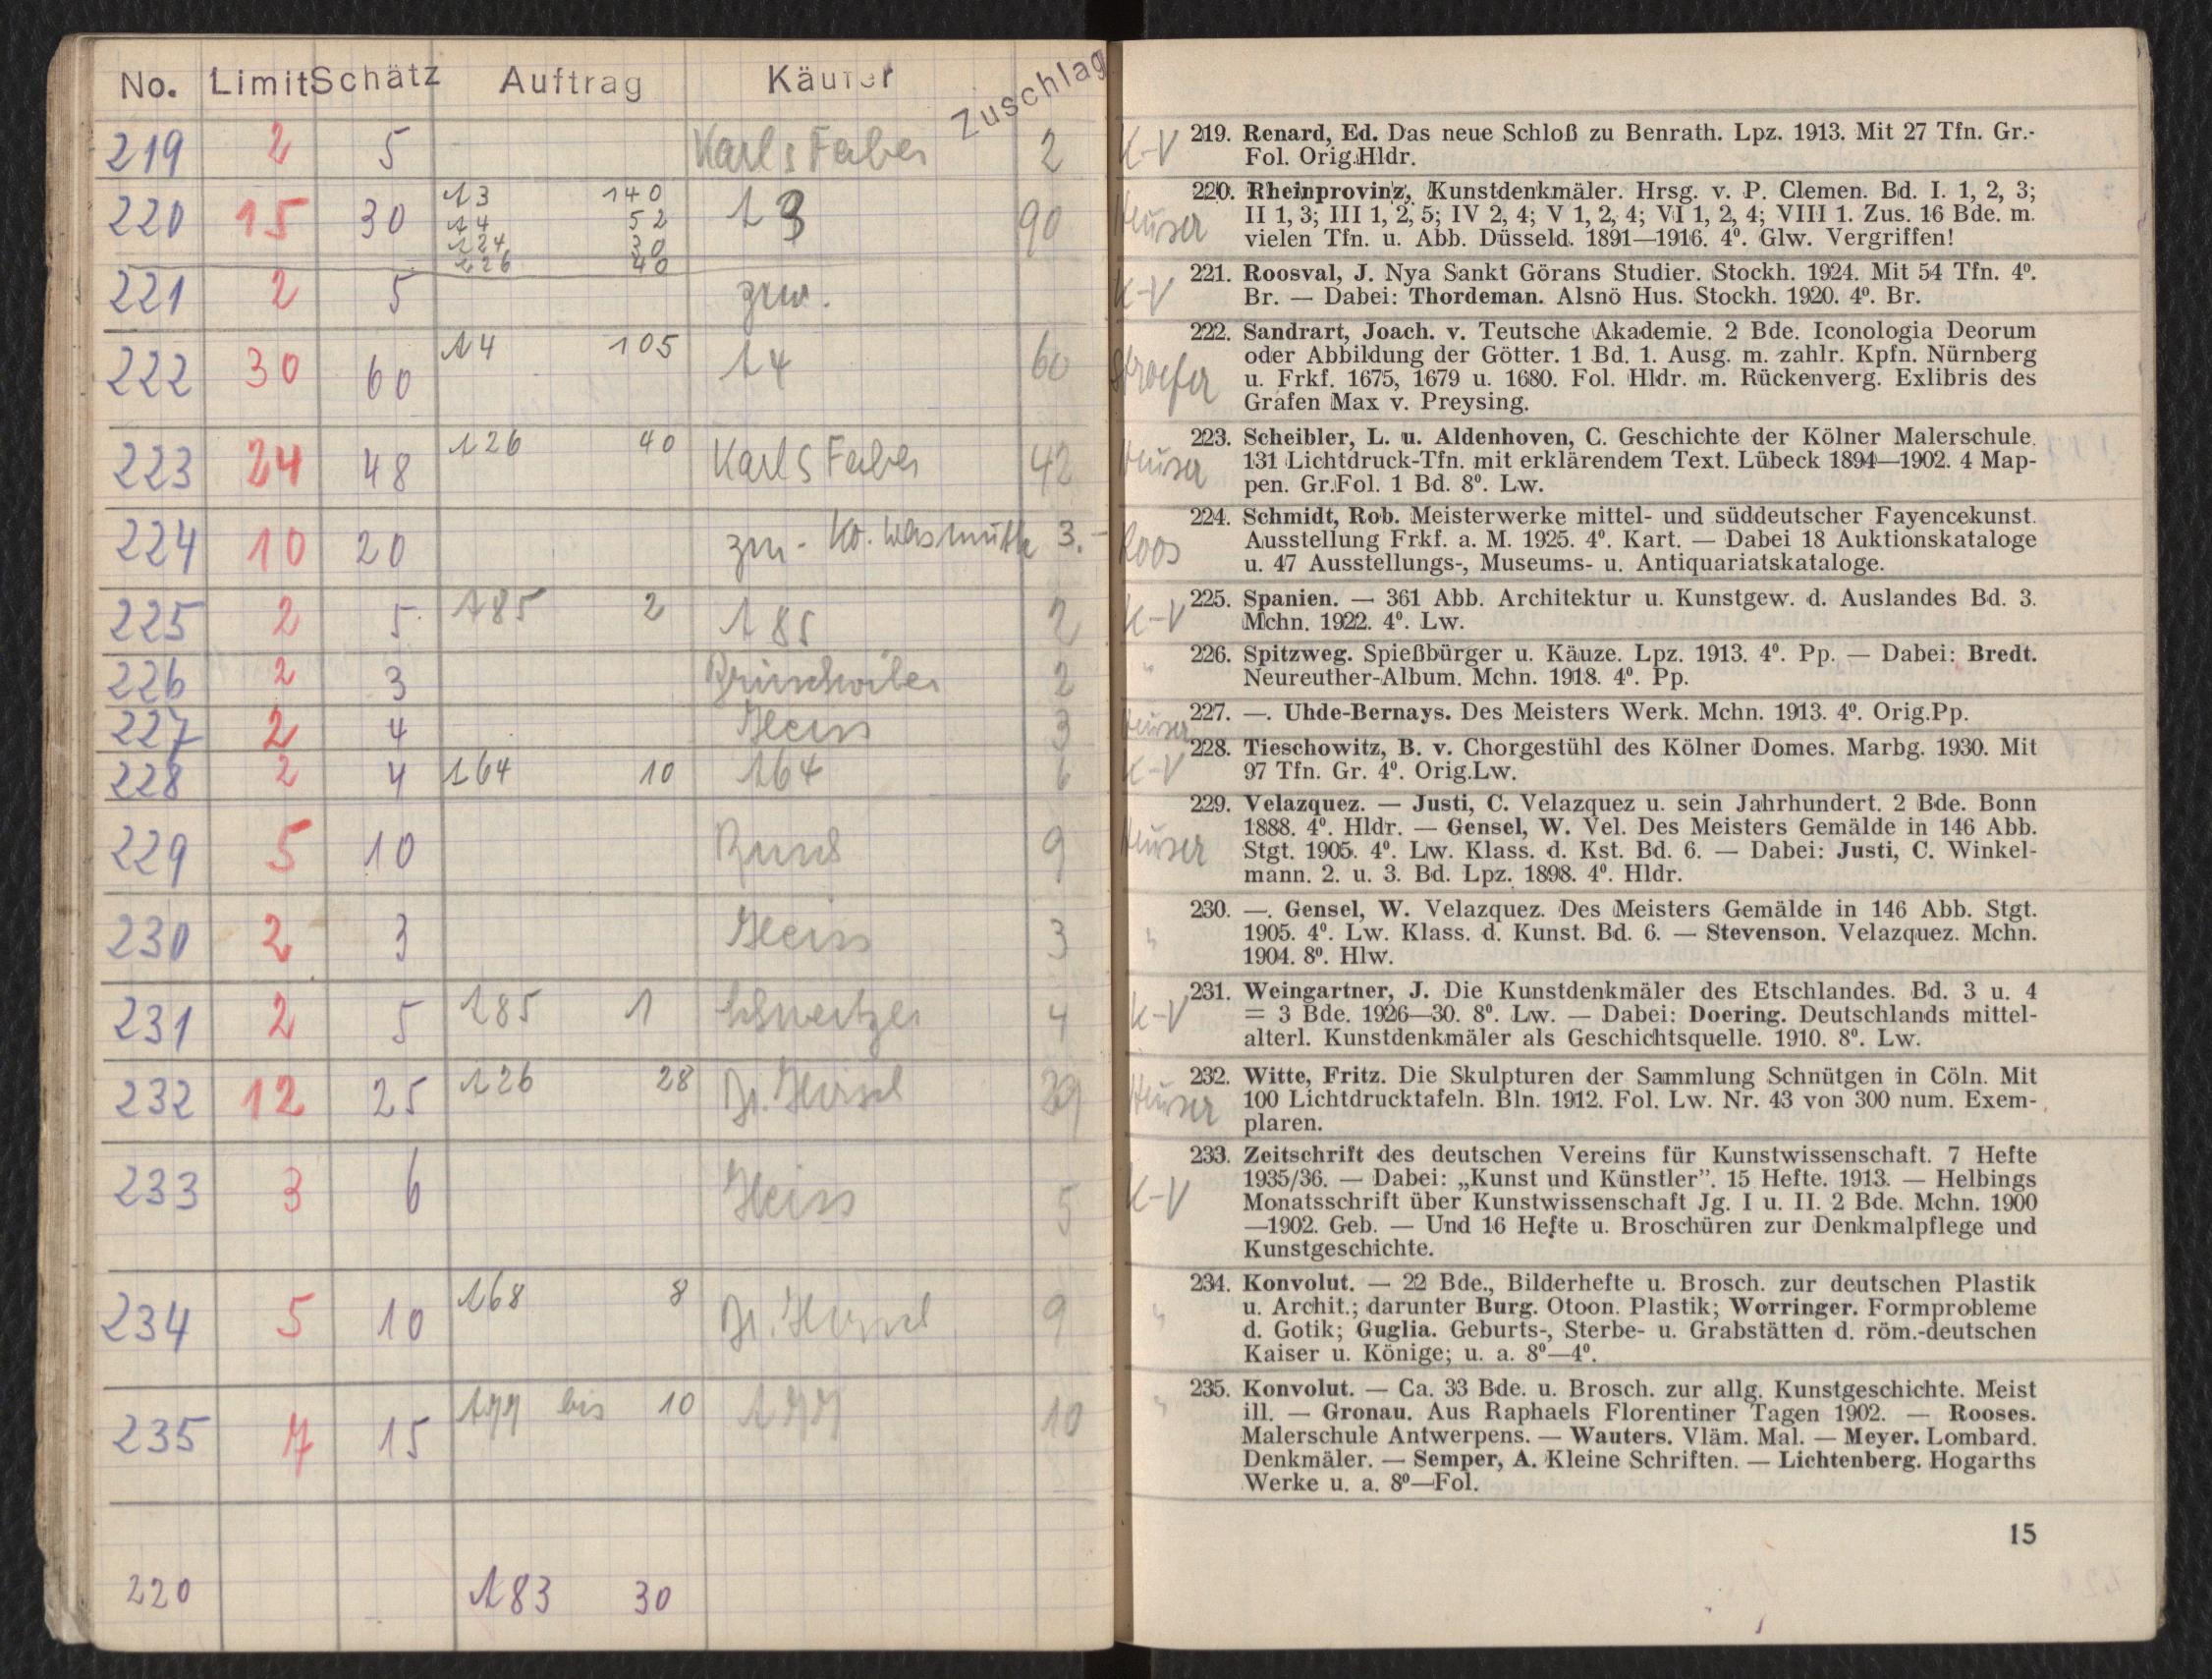 No. Limit Schätz Auftrag Käufer Zuschlag
219 2 5 Karl & Faber 2
220 15 30 13 140 13 90
14 52
124 30
126 40
221 2 5 zur.
222 30 60 14 105 14 60
223 24 48 126 40 Karl & Faber 42
224 10 20 zur. Wasmuth 3.-
225 2 5 185 2 185 2
226 2 3 2
227 2 4 Heiss 3
228 2 4 164 10 164 6
229 5 10 9
230 2 3 Heiss 3
231 2 5 185 1 Schweitzer 4
232 12 25 126 28 Dr.
233 3 6 Heiss 5
234 5 10 168 8 Dr. 9
235 7 15 177 bis 10 177 10
220 183 30
K-V 219. Renard, Ed. Das neue Schloß zu Benrath. Lpz. 1913. Mit 27 Tfn. Gr.-
Fol. Orig.Hldr.
220. Rheinprovinz, Kunstdenkmäler. Hrsg. v. P. Clemen. Bd. I. 1, 2, 3;
Heuser II 1, 3; III 1, 2, 5; IV 2, 4; V 1, 2, 4; VI 1, 2, 4; VIII 1. Zus. 16 Bde. m.
vielen Tfn. u. Abb. Düsseld. 1891—1916. 4⁰. Glw. Vergriffen!
K-V 221. Roosval, J. Nya Sankt Görans Studier. Stockh. 1924. Mit 54 Tfn. 4⁰.
Br. — Dabei: Thordeman. Alsnö Hus. Stockh. 1920. 4⁰. Br.
222. Sandrart, Joach. v. Teutsche Akademie. 2 Bde. Iconologia Deorum
oder Abbildung der Götter. 1 Bd. 1. Ausg. m. zahlr. Kpfn. Nürnberg
Stroefer u. Frkf. 1675, 1679 u. 1680. Fol. Hldr. m. Rückenverg. Exlibris des
Grafen Max v. Preysing.
223. Scheibler, L. u. Aldenhoven, C. Geschichte der Kölner Malerschule.
Heuser 131 Lichtdruck-Tfn. mit erklärendem Text. Lübeck 1894—1902. 4 Map-
pen. Gr.Fol. 1 Bd. 8⁰. Lw.
224. Schmidt, Rob. Meisterwerke mittel- und süddeutscher Fayencekunst.
Roos Ausstellung Frkf. a. M. 1925. 4⁰. Kart. — Dabei 18 Auktionskataloge
u. 47 Ausstellungs-, Museums- u. Antiquariatskataloge.
K-V 225. Spanien. — 361 Abb. Architektur u. Kunstgew. d. Auslandes Bd. 3.
Mchn. 1922. 4⁰. Lw.
" 226. Spitzweg. Spießbürger u. Käuze. Lpz. 1913. 4⁰. Pp. — Dabei: Bredt.
Neureuther-Album. Mchn. 1918. 4⁰. Pp.
Heuser 227. —. Uhde-Bernays. Des Meisters Werk. Mchn. 1913. 4⁰. Orig.Pp.
K-V 228. Tieschowitz, B. v. Chorgestühl des Kölner Domes. Marbg. 1930. Mit
97 Tfn. Gr. 4⁰. Orig.Lw.
229. Velazquez. — Justi, C. Velazquez u. sein Jahrhundert. 2 Bde. Bonn
1888. 4⁰. Hldr. — Gensel, W. Vel. Des Meisters Gemälde in 146 Abb.
Heuser Stgt. 1905. 4⁰. Lw. Klass. d. Kst. Bd. 6. — Dabei: Justi, C. Winkel-
mann. 2. u. 3. Bd. Lpz. 1898. 4⁰. Hldr.
230. —. Gensel, W. Velazquez. Des Meisters Gemälde in 146 Abb. Stgt.
" 1905. 4⁰. Lw. Klass. d. Kunst. Bd. 6. — Stevenson. Velazquez. Mchn.
1904. 8⁰. Hlw.
231. Weingartner, J. Die Kunstdenkmäler des Etschlandes. Bd. 3 u. 4
K-V = 3 Bde. 1926—30. 8⁰. Lw. — Dabei: Doering. Deutschlands mittel-
alterl. Kunstdenkmäler als Geschichtsquelle. 1910. 8⁰. Lw.
232. Witte, Fritz. Die Skulpturen der Sammlung Schnütgen in Cöln. Mit
Heuser 100 Lichtdrucktafeln. Bln. 1912. Fol. Lw. Nr. 43 von 300 num. Exem-
plaren.
233. Zeitschrift des deutschen Vereins für Kunstwissenschaft. 7 Hefte
K-V 1935/36. — Dabei: „Kunst und Künstler”. 15 Hefte. 1913. — Helbings
Monatsschrift über Kunstwissenschaft Jg. I u. II. 2 Bde. Mchn. 1900
—1902. Geb. — Und 16 Hefte u. Broschüren zur Denkmalpflege und
Kunstgeschichte.
234. Konvolut. — 22 Bde., Bilderhefte u. Brosch. zur deutschen Plastik
" u. Archit.; darunter Burg. Otoon. Plastik; Worringer. Formprobleme
d. Gotik; Guglia. Geburts-, Sterbe- u. Grabstätten d. röm.-deutschen
Kaiser u. Könige; u. a. 8⁰—4⁰.
" 235. Konvolut. — Ca. 33 Bde. u. Brosch. zur allg. Kunstgeschichte. Meist
ill. — Gronau. Aus Raphaels Florentiner Tagen 1902. — Rooses.
Malerschule Antwerpens. — Wauters. Vläm. Mal. — Meyer. Lombard.
Denkmäler. — Semper, A. Kleine Schriften. — Lichtenberg. Hogarths
Werke u. a. 8⁰—Fol.
15